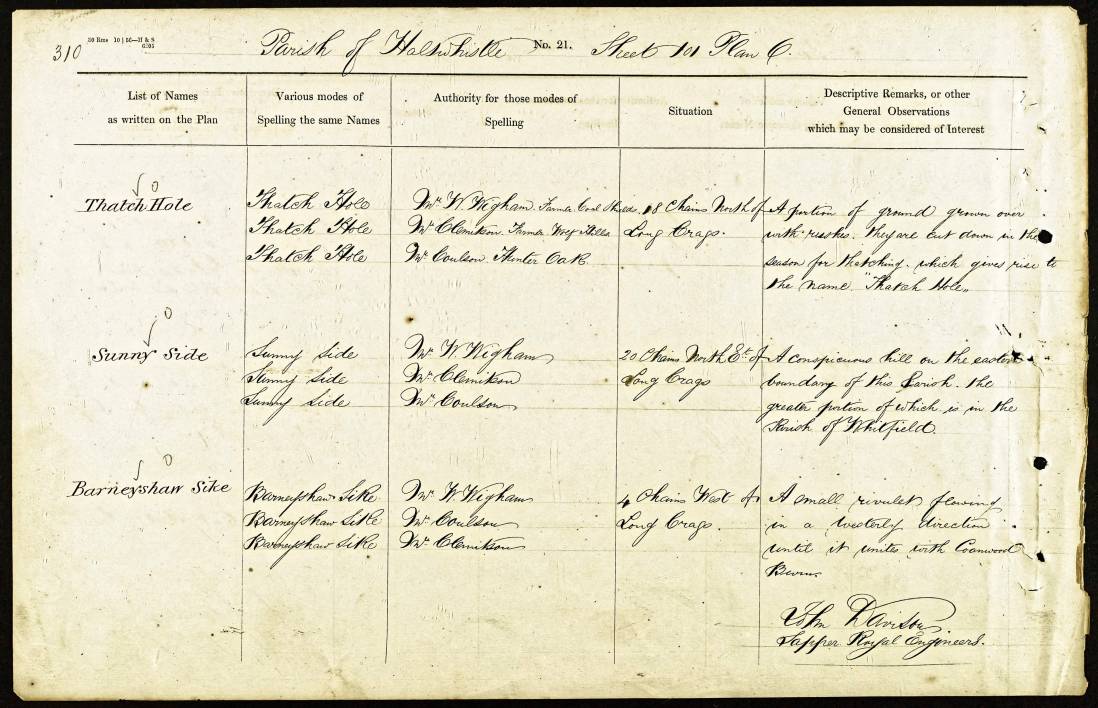 310
30 Rms 10 | 56—H & S
G 205
Parish of Haltwhistle No. 21. Sheet 101 Plan 6.
List of Names
as written on the Plan
Various modes of
Spelling the same Names
Authority for those modes of
Spelling
Situation
Descriptive Remarks, or other
General Observations
which may be considered of Interest
Thatch Hole
Thatch Hole
Thatch Hole
Thatch Hole
Mr. W. Wigham. Farmer Coal Shields.
Mr. Clemitson Farmer Wolf Hills
Mr. Coulson. Hunter Oak.
18 Chains North of
Long Crags.
A portion of ground grown over
with rushes. They are cut down in the
season for thatching. which gives rise to
the name "Thatch Hole"
Sunny Side
Sunny Side
Sunny Side
Sunny Side
Mr. W. Wigham
Mr. Clemitson
Mr. Coulson
20 Chains North Et. of
Long Crags
A conspicuous hill on the eastern
boundary of this Parish. the
greater portion of which is in the
Parish of Whitfield.
Barneyshaw Sike
Barneyshaw Sike
Barneyshaw Sike
Barneyshaw Sike
Mr. W. Wigham
Mr. Coulson
Mr. Clemitson
4 Chains West of
Long Crags.
A small rivulet flowing
in a westerly direction
until it unites with Coanwood
Burn.
John Davison
Sapper Royal Engineers.